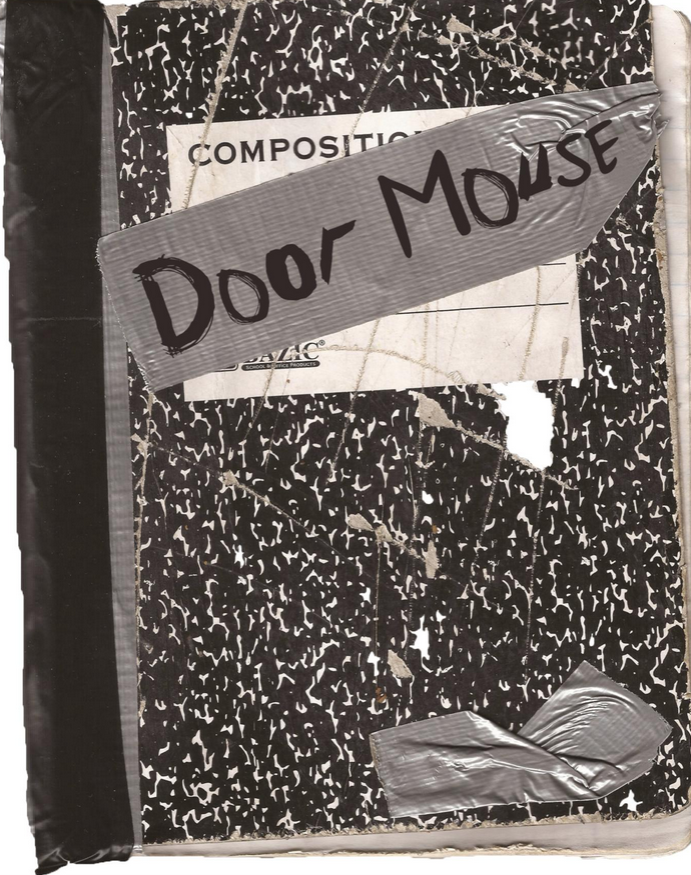 COMPOSITIO
Door MOUSE
BAZIC®
SCHOOL & OFFICE PRODUCTS